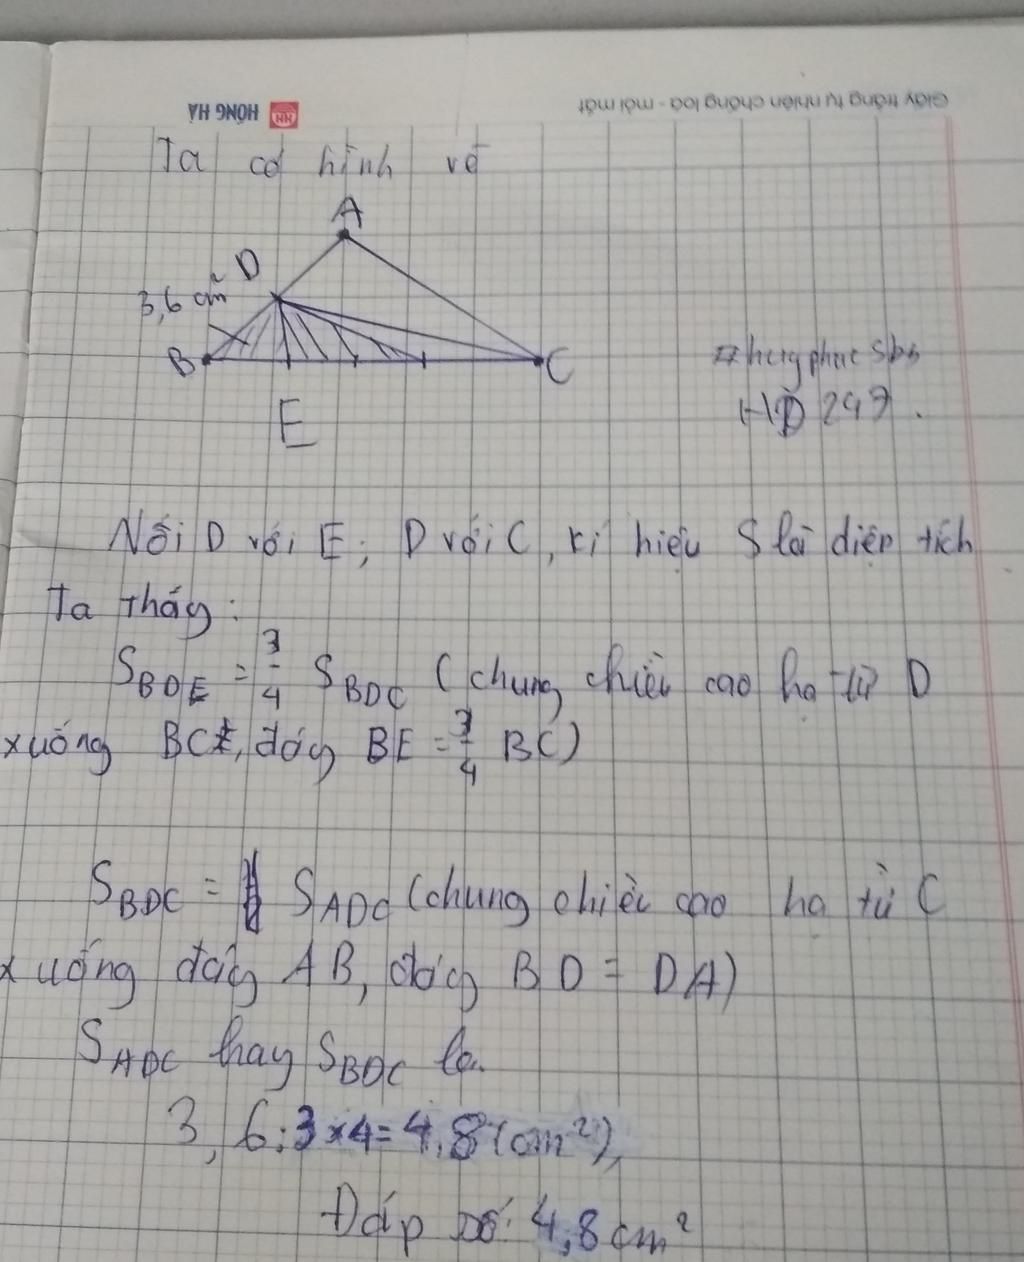 HỒNG HÀ
Giấy trắng tự nhiên chống loá - mỏi mắt
Ta có hình vẽ
A
D
3,6 cm²
B
C
E
HĐ 247.
Nối D với E; D với C, kí hiệu S là diện tích
Ta thấy:
S_BDE = 3/4 S_BDC (chung chiều cao hạ từ D
xuống BC, đáy BE = 3/4 BC)
S_BDC = S_ADC (chung chiều cao hạ từ C
xuống đáy AB, đáy BD = DA)
S_ADC hay S_BDC là
3,6:3x4=4,8(cm²)
Đáp số: 4,8 cm²